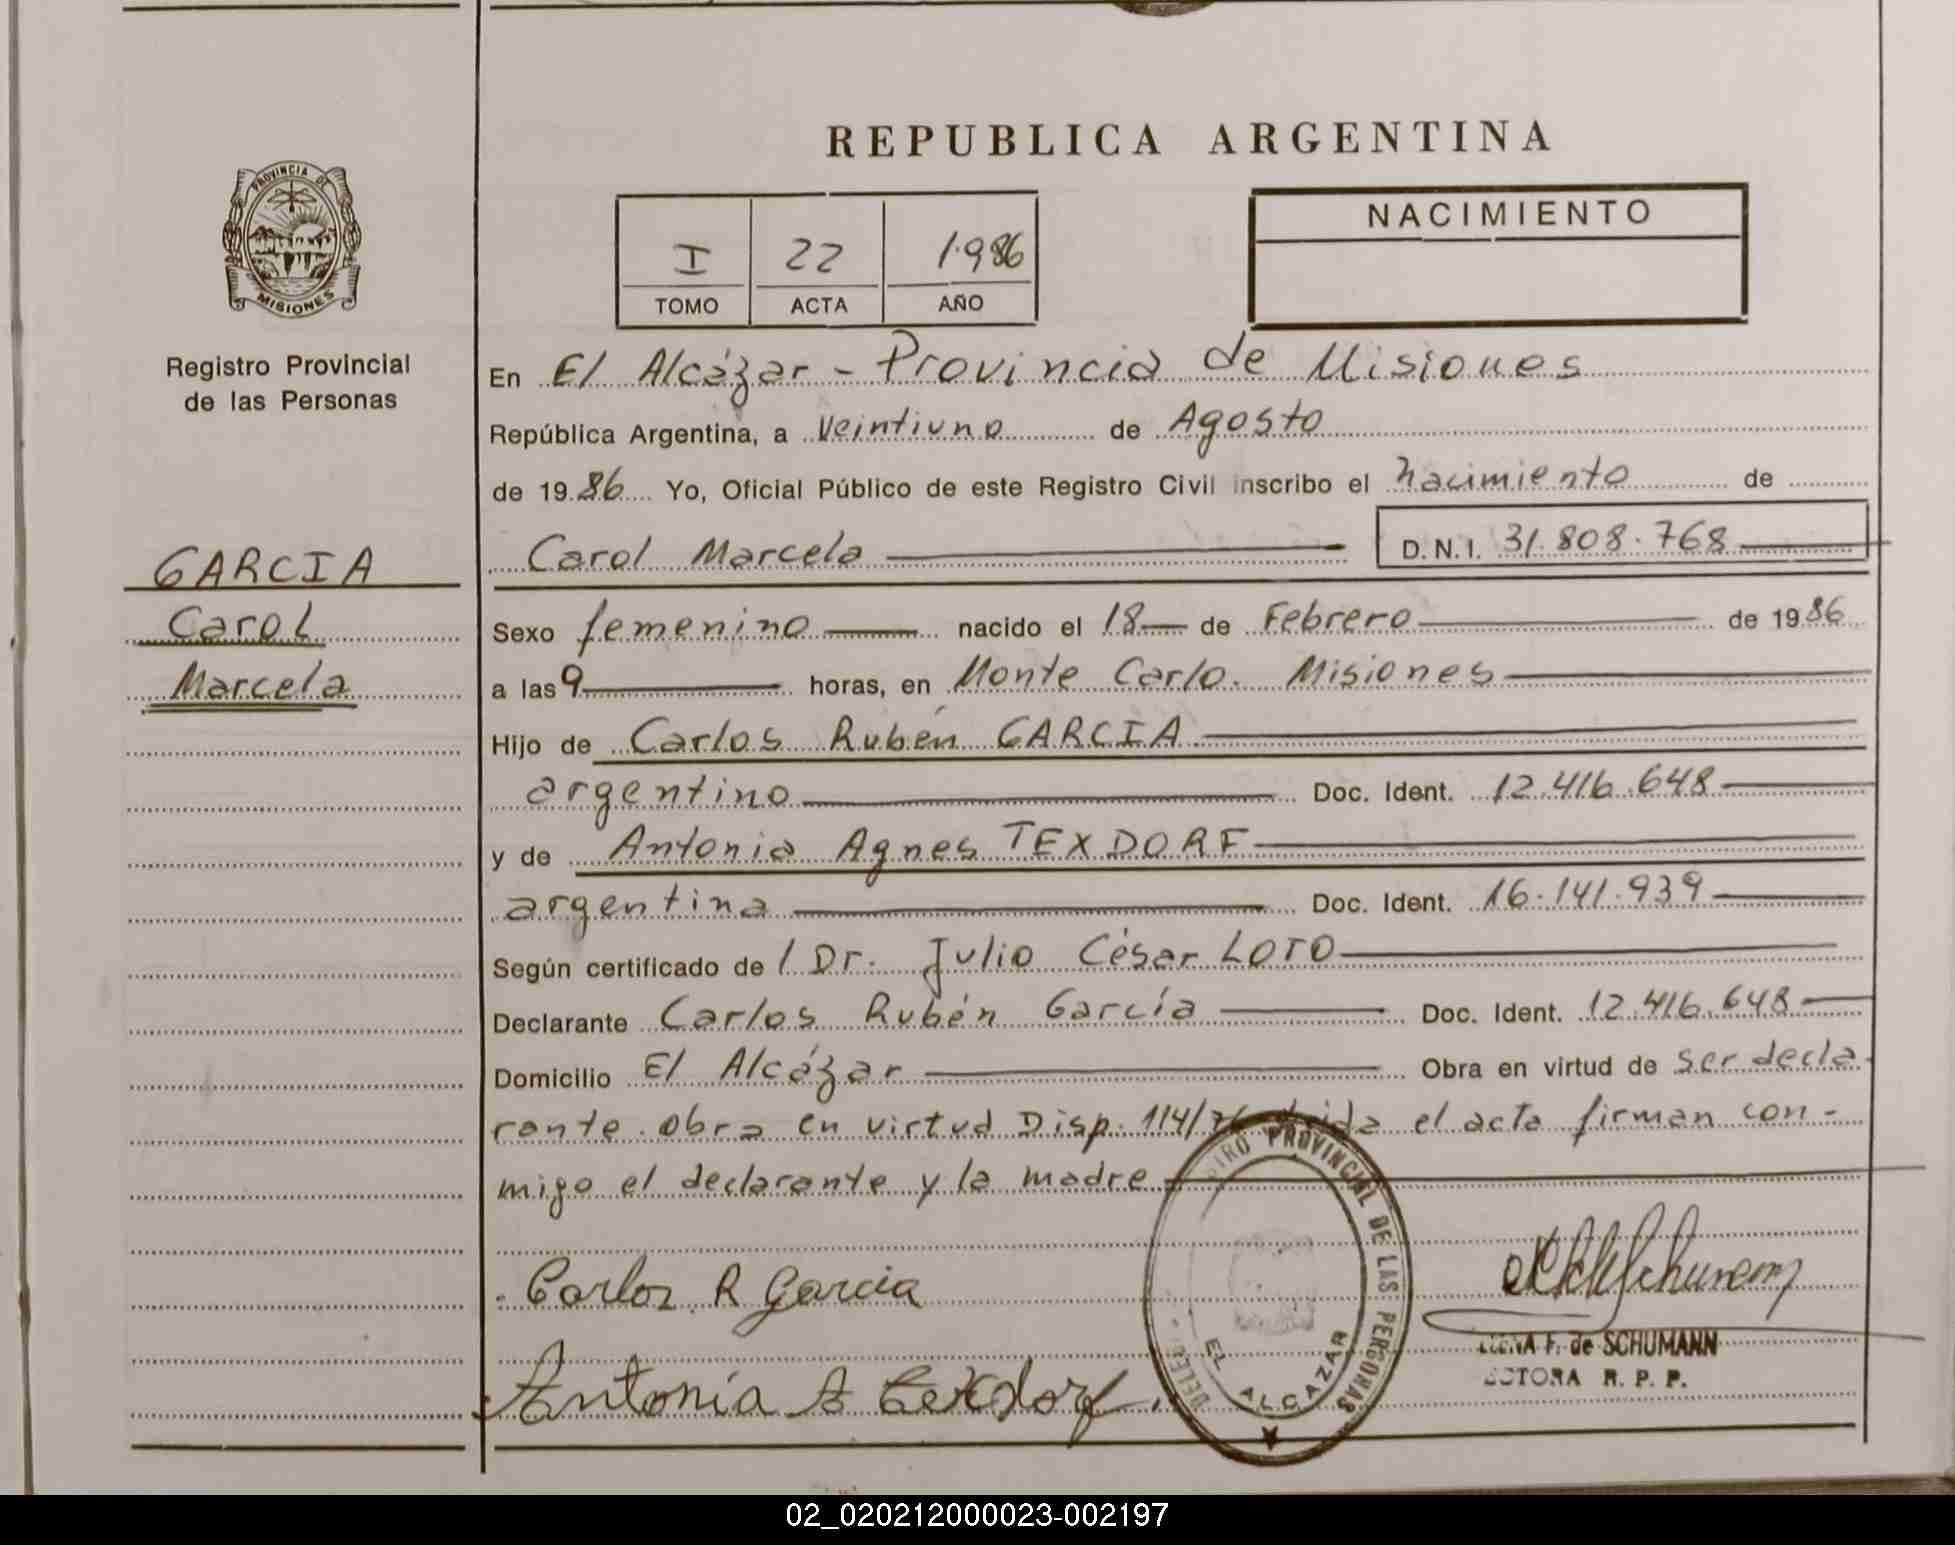 REPUBLICA ARGENTINA
PROVINCIA DE
MISIONES
Registro Provincial
de las Personas
GARCIA
Carol
Marcela
I 22 1986
TOMO ACTA AÑO
NACIMIENTO
En El Alcázar - Provincia de Misiones
República Argentina, a Veintiuno de Agosto
de 1986 Yo, Oficial Público de este Registro Civil inscribo el nacimiento de
Carol Marcela D.N.I. 31.808.768
Sexo femenino nacido el 18 de Febrero de 1986
a las 9 horas, en Monte Carlo. Misiones
Hijo de Carlos Rubén GARCIA
argentino Doc. Ident. 12.416.648
y de Antonia Agnes TEXDORF
argentina Doc. Ident. 16.141.939
Según certificado de / Dr. Julio César LOTO
Declarante Carlos Rubén García Doc. Ident. 12.416.648
Domicilio El Alcázar Obra en virtud de ser decla-
rante obra en virtud Disp. 114/76 leída el acta firman con-
migo el declarante y la madre
Carlos R Garcia
Antonia A Texdorf.
PROVINCIAL DE LAS PERSONAS
EL ALCAZAR
F. de SCHUMANN
R. P. P.
02_020212000023-002197